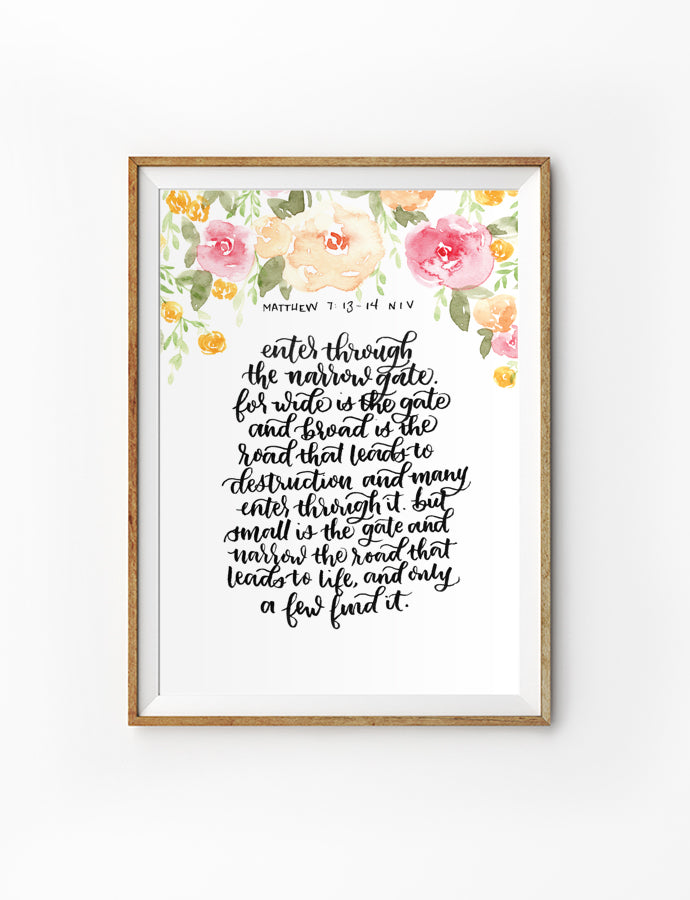 MATTHEW 7:13-14 NIV
enter through
the narrow gate.
for wide is the gate
and broad is the
road that leads to
destruction and many
enter through it. but
small is the gate and
narrow the road that
leads to life, and only
a few find it.